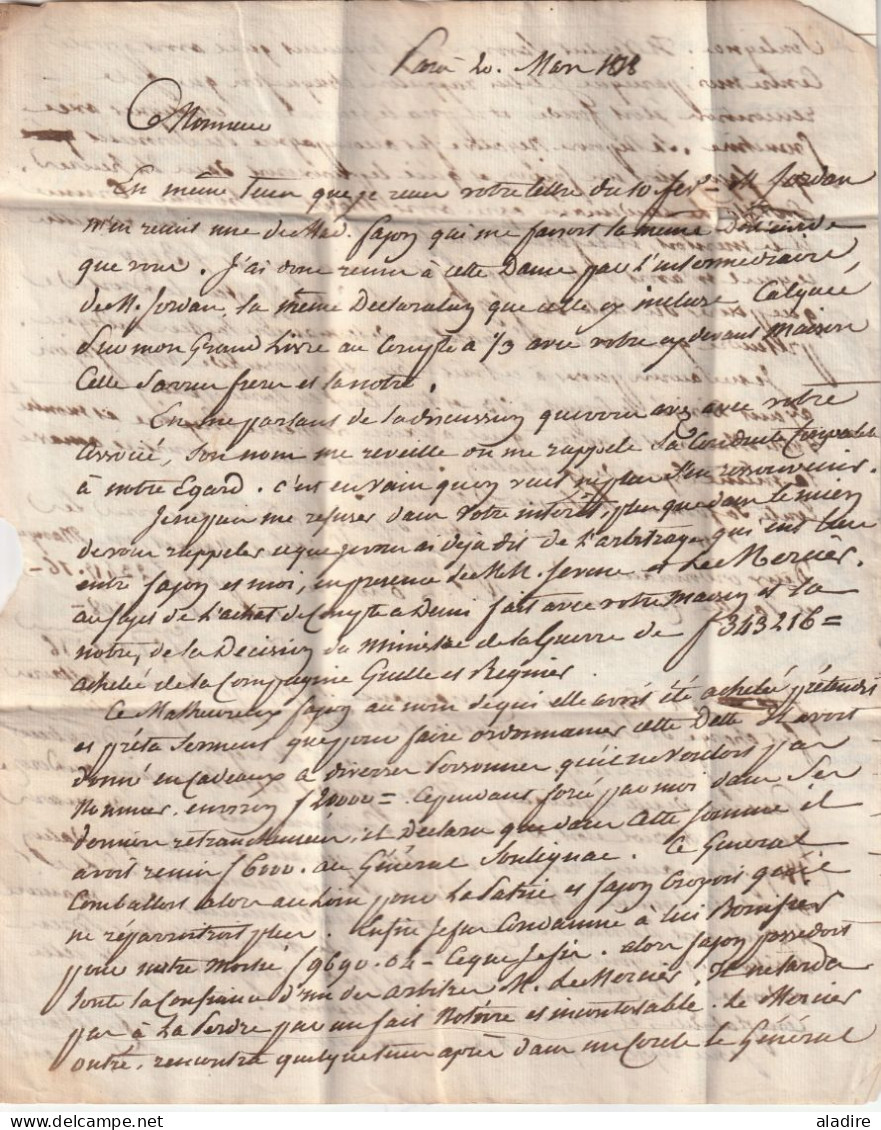 Paris 20. Mars 1818
Monsieur
En même tems que je recu votre lettre du 10 fev.r M Jordan
m'en remis une de Mad. Fajon qui me faisoit la même Demande
que vous. J'ai donc remis à cette Dame par L'intermediaire,
de M. Jordan, la même Declaration que celle cy incluse Calquée
Sur mon Grand Livre au Compte a 1/3 avec votre cy devant Maison
Celle frere et la notre.
En me parlant de la discussion que vous avez avec votre
associé, Son nom me reveille ou me rappele Sa Conduite
à notre Egard. C'est en vain qu'on veut ne plus S'en ressouvenir.
Je ne puis me refuser dans votre intérêt, plus que dans le mien
de vous rappeler ce que je vous ai deja dit de L'arbitrage qui eut lieu
entre Fajon et moi, en presence de MM. et Le Mercier.
au Sujet de L'achat de Compte a Demi fait avec votre Maison et la
notre, de la Decision du Ministre de la Guerre de f 343216=
achetée de la Compagnie Guelle et Regnier
Ce Malheureux Fajon au nom de qui elle avoit été achetée pretendit
et prêta Serment que pour faire ordonnancer cette Dette Il avoit
donné en Cadeaux a diverses Personnes qu'il ne vouloit pas
Nommer. environ f 20000=. Cependant forcé par moi dans Ses
derniers retranchemens, il Declara que dans cette Somme il
avoit remis f 6000. au Général Soulignac. Ce General
Combattoit alors au Loin pour La Patrie et Fajon Croyoit qu'il
ne réparoitroit plus. Enfin Je fus Condamné à lui Bonifier
pour notre Moitié f 9690.04 - Ce que Je fis. alors Fajon possedoit
toute la Confiance d'un des arbitres M. Le Mercier, Il ne tarda
pas à La Perdre par un fait Notoire et incontestable. Le Mercier
outré, rencontra quelque tems après dans un Cercle le Général
Celle